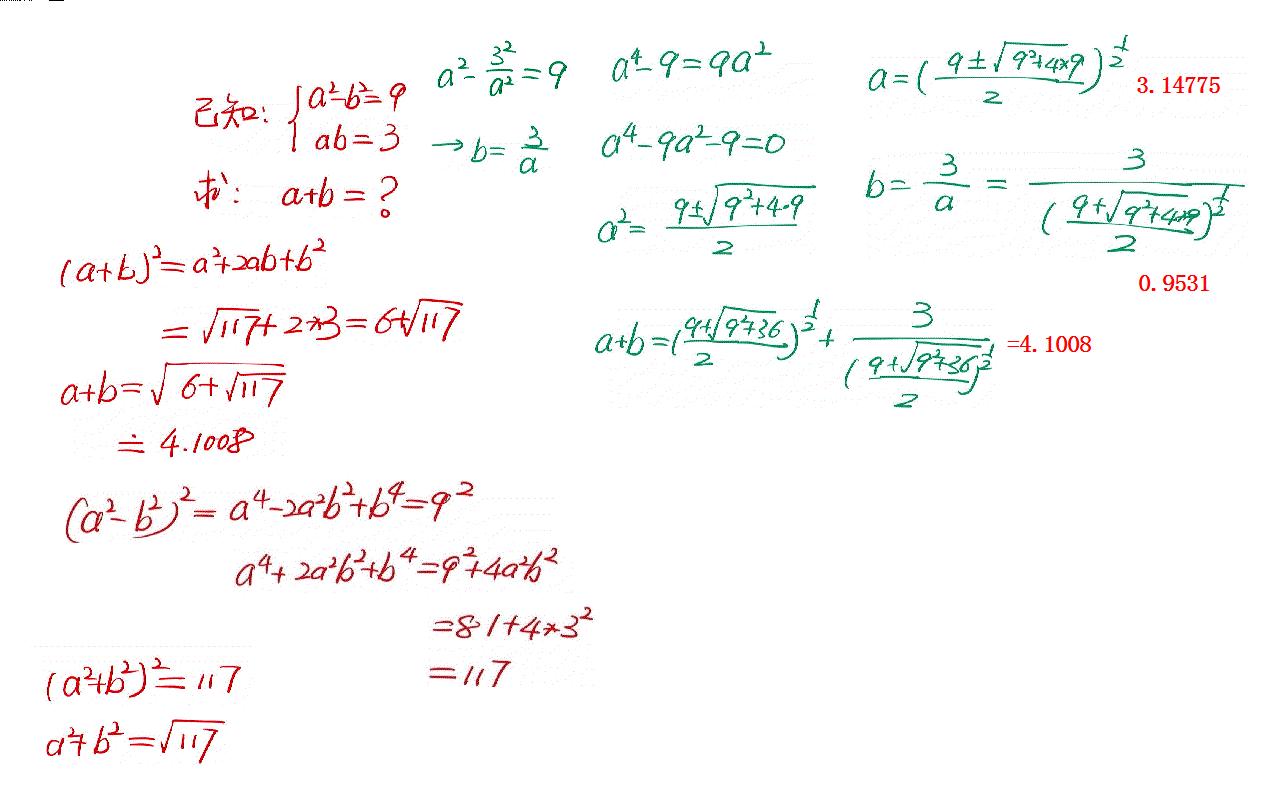 已知: { a²-b²=9
ab=3
求: a+b=?
(a+b)²=a²+2ab+b²
=√117+2*3=6+√117
a+b=√(6+√117)
≐4.1008
(a²-b²)²=a⁴-2a²b²+b⁴=9²
a⁴+2a²b²+b⁴=9²+4a²b²
=81+4*3²
=117
(a²+b²)²=117
a²+b²=√117
a²-3²/a²=9
→b=3/a
a⁴-9=9a²
a⁴-9a²-9=0
a²=(9±√(9²+4·9))/2
a=((9±√(9²+4*9))/2)^(1/2) 3.14775
b=3/a=3/((9+√(9²+4*9))/2)^(1/2)
0.9531
a+b=((9+√(9²+36))/2)^(1/2)+3/((9+√(9²+36))/2)^(1/2) =4.1008